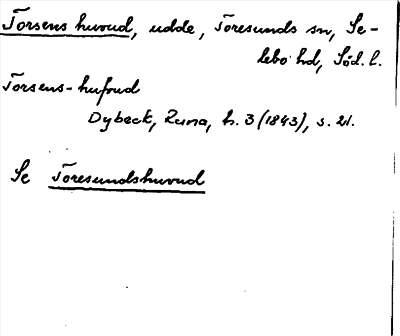 Torsens huvud, udde, Toresunds sn, Se-
lebo hd, Söd. l.
Torsens-hufoud
Dybeck, Runa, h. 3 (1843), s. 21.
Se Toresundshuvud